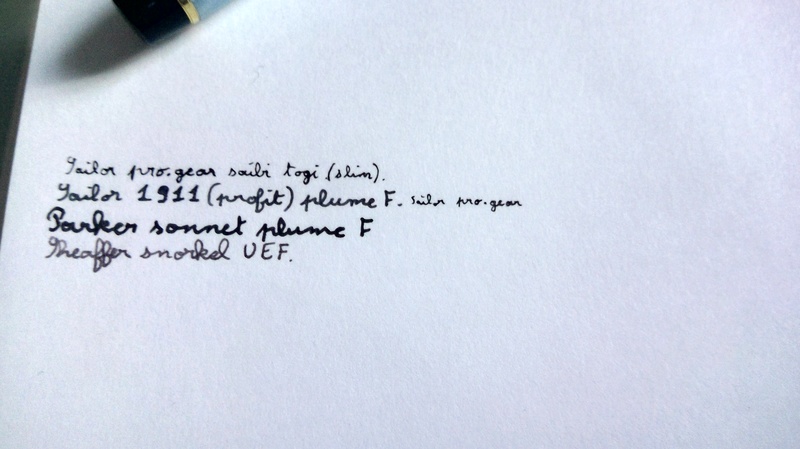 Sailor pro.gear saibi togi (slim).
Sailor 1911 (profit) plume F. sailor pro.gear
Parker sonnet plume F
Sheaffer snorkel UEF.